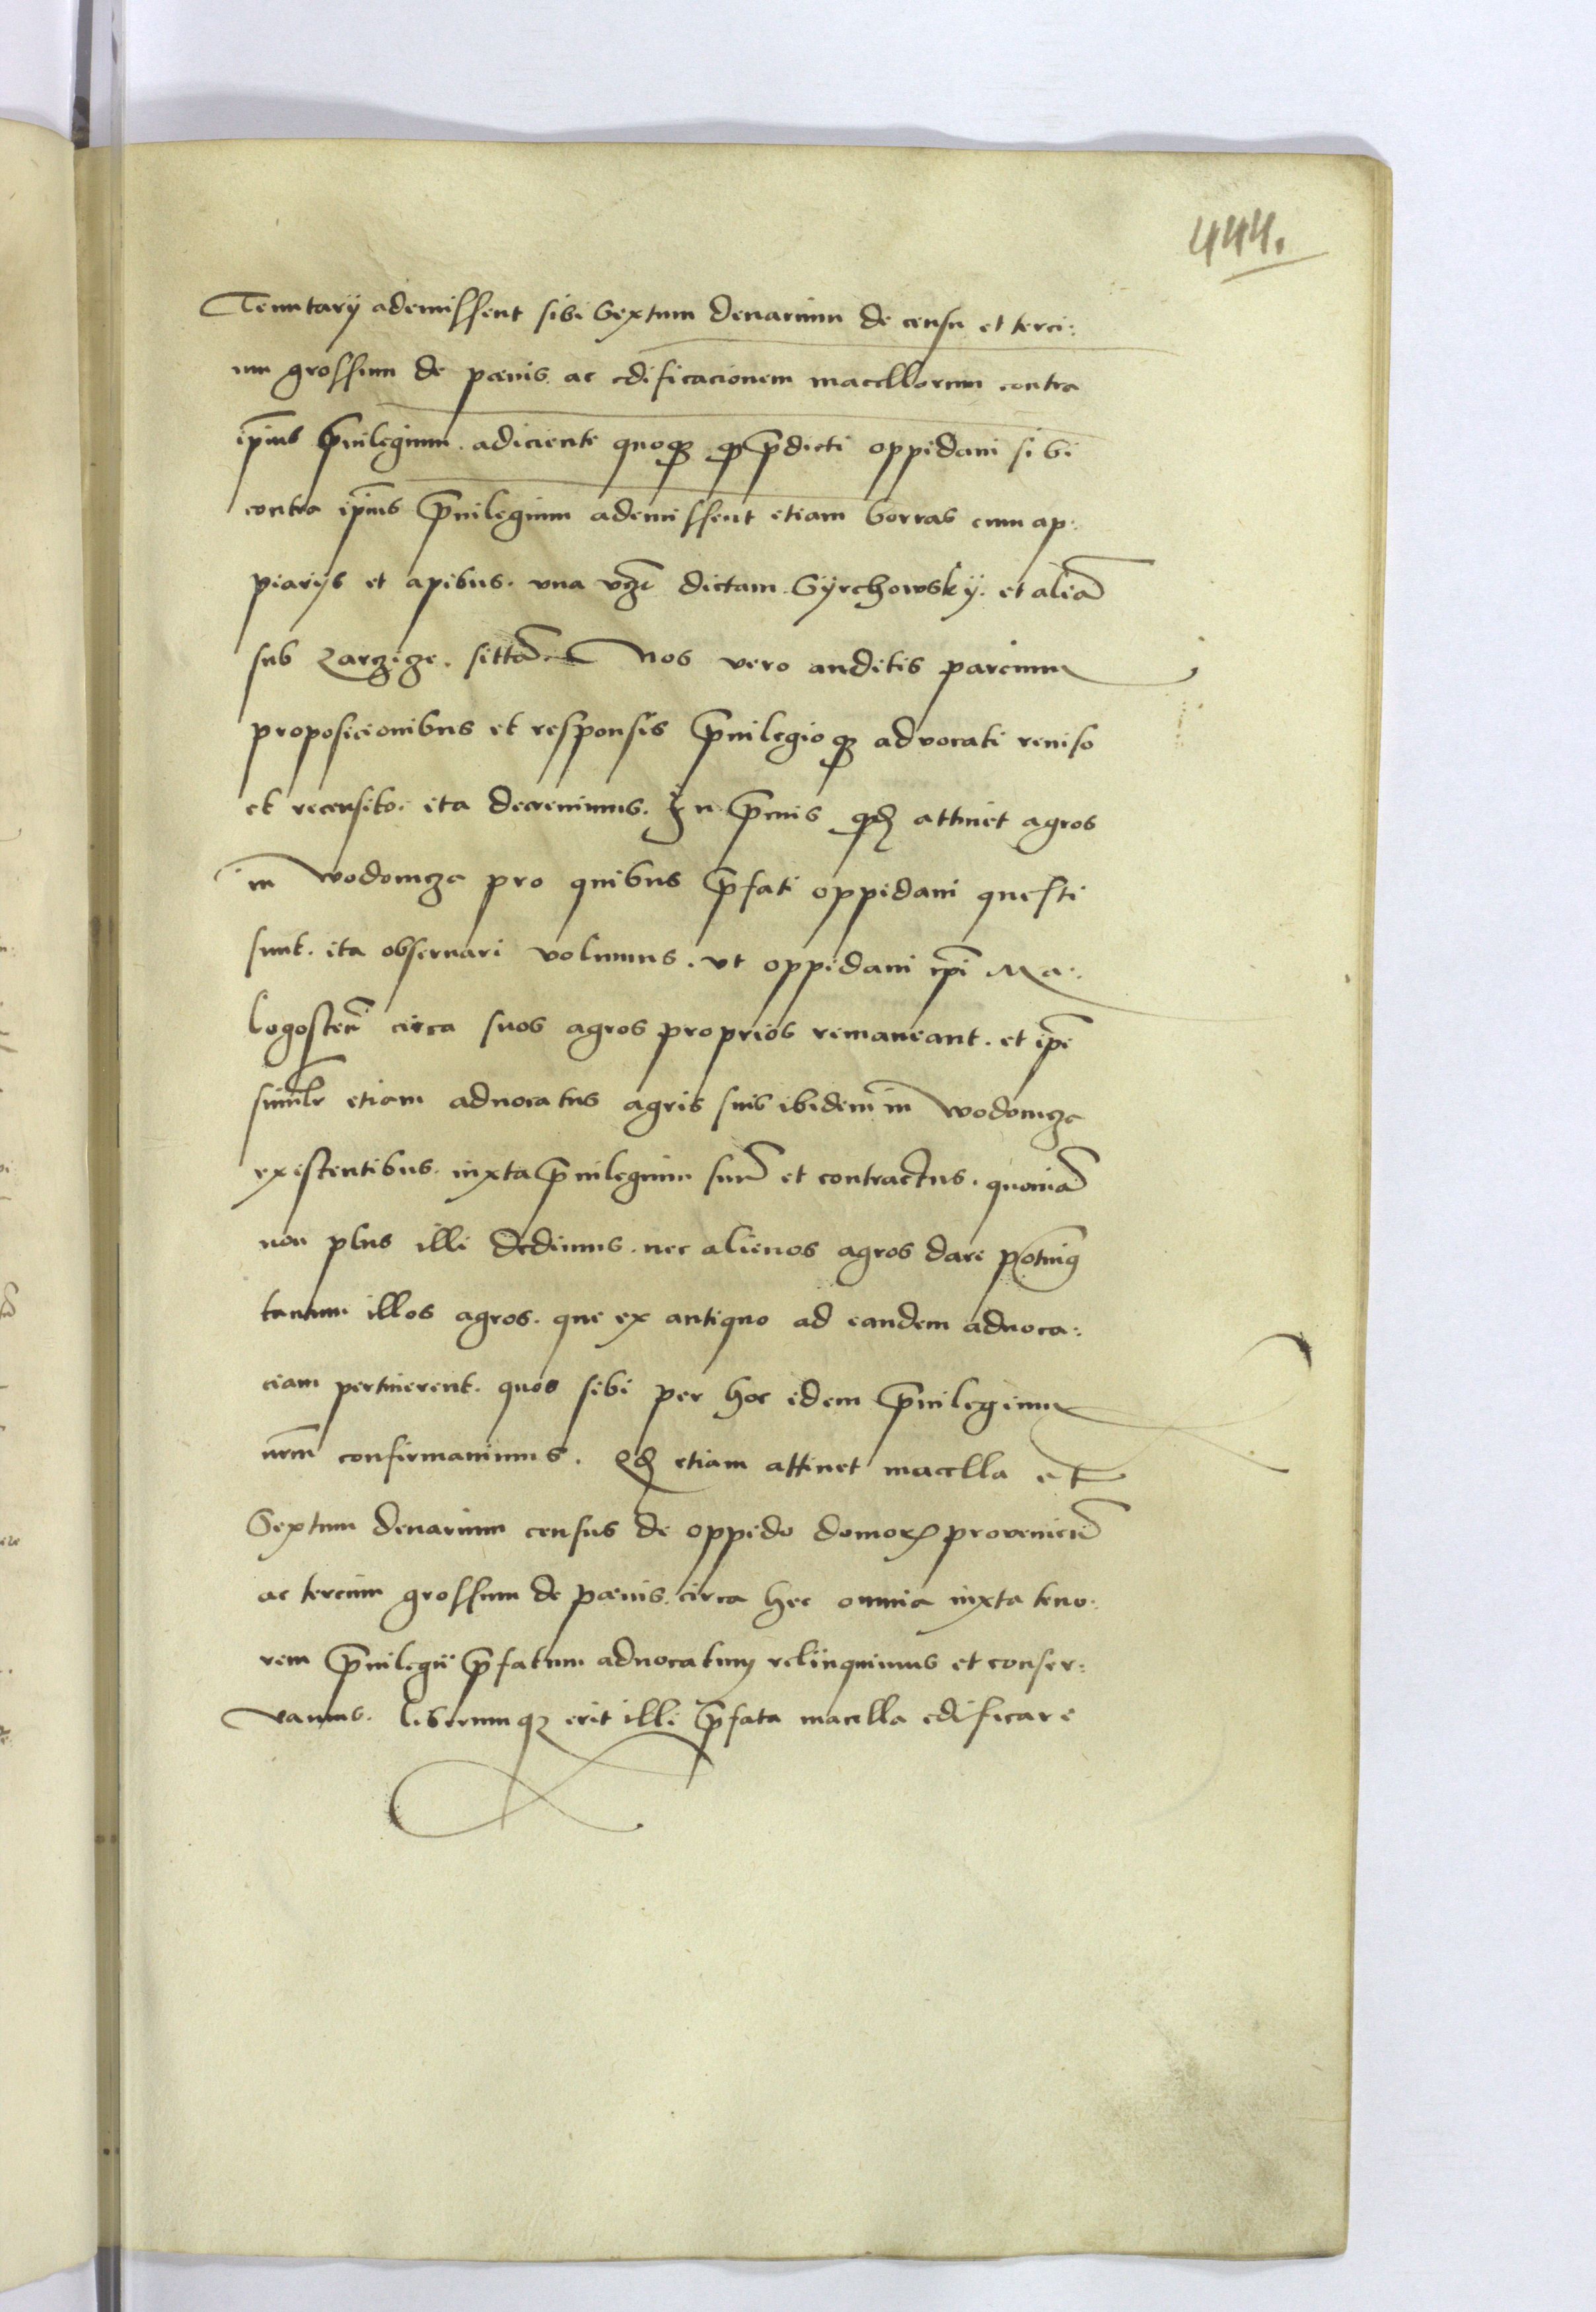 444.
Tenutarij ademissent sibi Sextum denarium de censu et terci:
um grossum de poenis. ac edificacionem macellorum contra
ip̄ius p̄uilegium. adiciente quoqꝫ qꝫ p̄dicti oppidani sibi
contra ip̄ius p̄uilegium ademissent etiam borras cum ap:
piarijs et apibus. vna vꝫ dictam. Gÿrchowskÿ. et aliā
sub Zarzÿcze. sittā. Nos vero auditis parcium
proposicionibus et responsis p̄uilegioqꝫ aduocati reuiso
et recensito. ita decreuimus. In p̄mis qd̄ attinet agros
in wodomcza pro quibus p̄fati oppidani questi
sunt. ita obseruari volumus. vt oppidani ip̄i Ma:
logosteñ circa suos agros proprios remaneant. et ip̄e
simil̄r etiam aduocatus agris suis ibidem in wodomcza
existentibus. iuxta p̄uilegium suū et contractus. quoniā
non plus illi dedimus. nec alienos agros dare potuimꝰ
tantum illos agros. que ex antiquo ad eandem aduoca:
ciam pertinerent. quos sibi per hoc idem p̄uilegium
nr̄m confirmauimus. Qd̄ etiam attinet macella et
Sextum denarium census de oppido domoꝝ proveniēn
ac tercium grossum de poenis. circa hec omnia iuxta teno:
rem p̄uilegii p̄fatum aduocatum relinquimus et conser:
vamus. liberumqꝫ erit illi p̄fata macella edificare